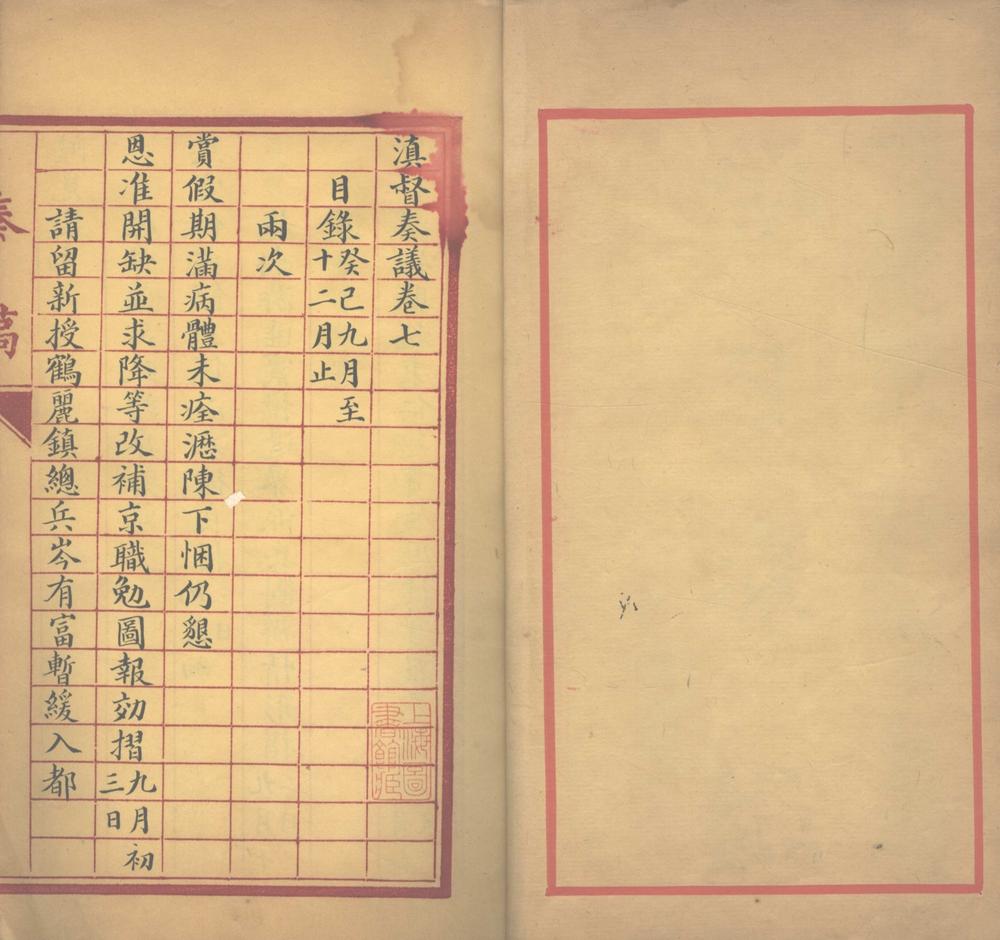 滇督奏議卷七
目錄癸巳九月至十二月止
兩次
賞假期滿病體未痊瀝陳下悃仍懇
恩准開缺並求降等改補京職勉圖報効摺九月初三日
請留新授鶴麗鎮總兵岑有富暫緩入都
奏稿
上海圖書館藏